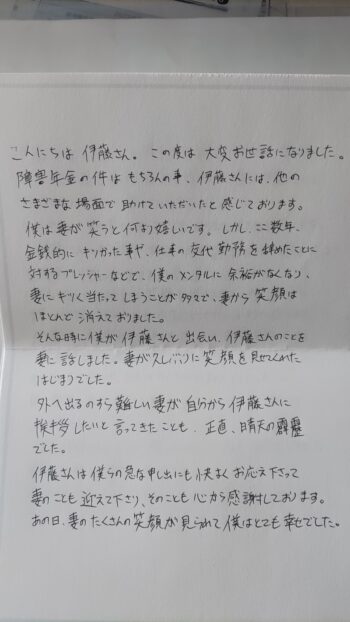 こんにちは 伊藤さん。この度は 大変お世話になりました。
障害年金の件は もちろんの事、伊藤さんには、他の
さまざまな 場面で 助けていただいたと 感じております。
僕は 妻が 笑うと 何より 嬉しいです。しかし、ここ数年、
金銭的に キツかった事や、仕事の 交代勤務を 辞めたことに
対するプレッシャーなどで、僕の メンタルに 余裕がなくなり、
妻に キツく当たって しまうことが 多々で、妻から 笑顔は
ほとんど 消えて おりました。
そんな時に 僕が 伊藤さんと 出会い、伊藤さんのことを
妻に 話しました。妻が 久しぶりに 笑顔を 見せてくれた
はじまりでした。
外へ出るのすら 難しい 妻が 自分から 伊藤さんに
挨拶したいと 言ってきたことも、正直、晴天の 霹靂
でした。
伊藤さんは 僕らの 急な申し出にも 快よく お応え下さって
妻のことも 迎えて下さり、そのことも 心から 感謝しております。
あの日、妻の たくさんの 笑顔が 見られて 僕はとても 幸せでした。